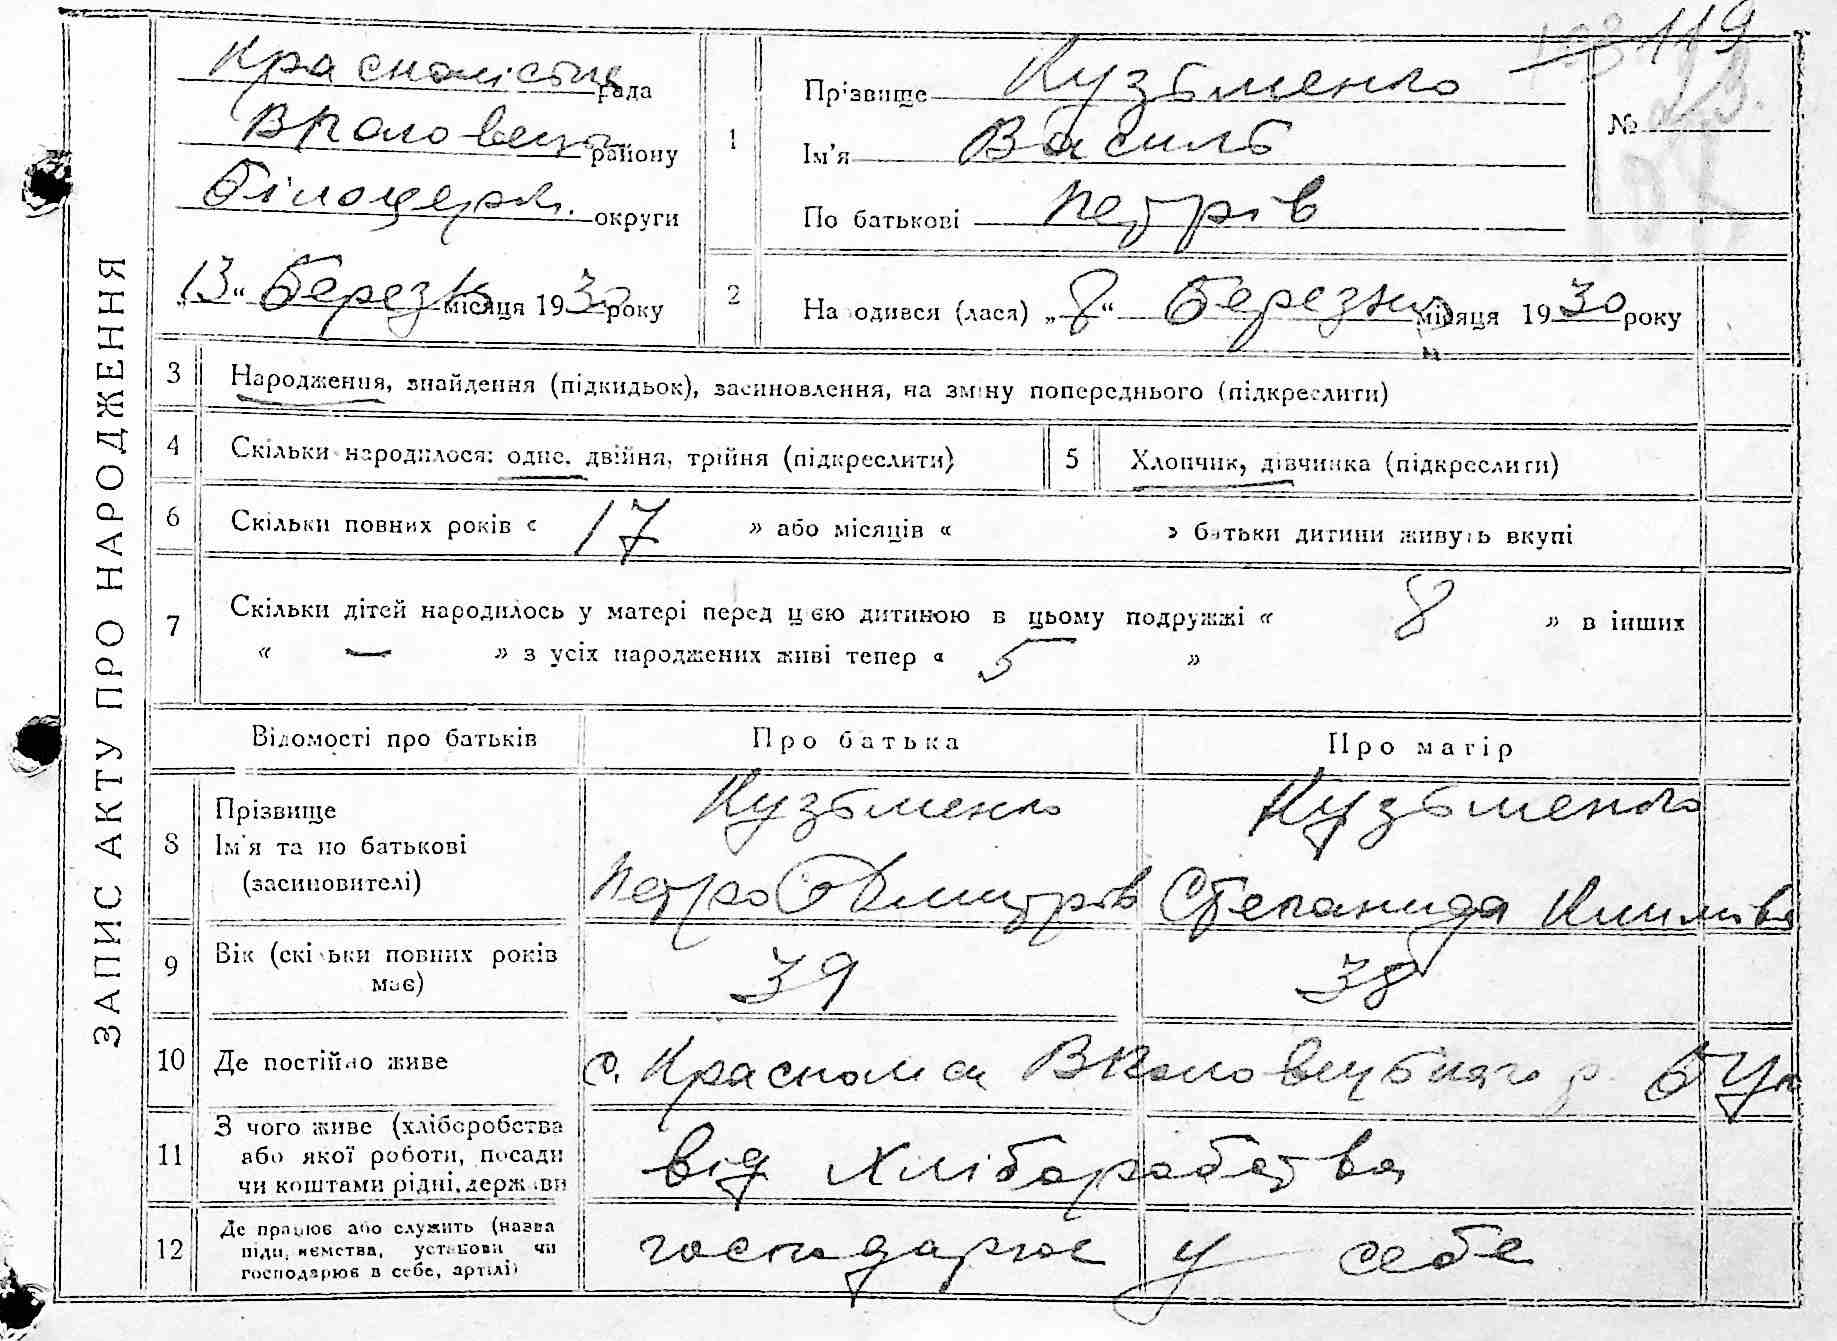 ЗАПИС АКТУ ПРО НАРОДЖЕННЯ
119
рада
району
Білоцерк. округи
„13“ Березня місяця 1930 року
1
Прізвище Кузьменко
Ім'я Василь
По батькові Петрів
№ 23.
2
Народився (лася) „8“ Березня місяця 1930 року
3 Народження, знайдення (підкидьок), засиновлення, на зміну попереднього (підкреслити)
4 Скільки народилося: одне, двійня, трійня (підкреслити)
5 Хлопчик, дівчинка (підкреслити)
6 Скільки повних років « 17 » або місяців « » батьки дитини живуть вкупі
7 Скільки дітей народилось у матері перед цією дитиною в цьому подружжі « 8 » в інших
« — » з усіх народжених живі тепер « 5 »
Відомості про батьків Про батька Про матір
8 Прізвище Кузьменко Кузьменко
Ім'я та по батькові
(засиновителі) Петро Дмитрів Степанида Климівна
9 Вік (скільки повних років
має) 39 38
10 Де постійно живе с.
11 З чого живе (хліборобства
або якої роботи, посади
чи коштами рідні, держави від Хліборобства
12 Де працює або служить (назва
підприємства, установи чи
господарює в себе, артілі) господарює у себе